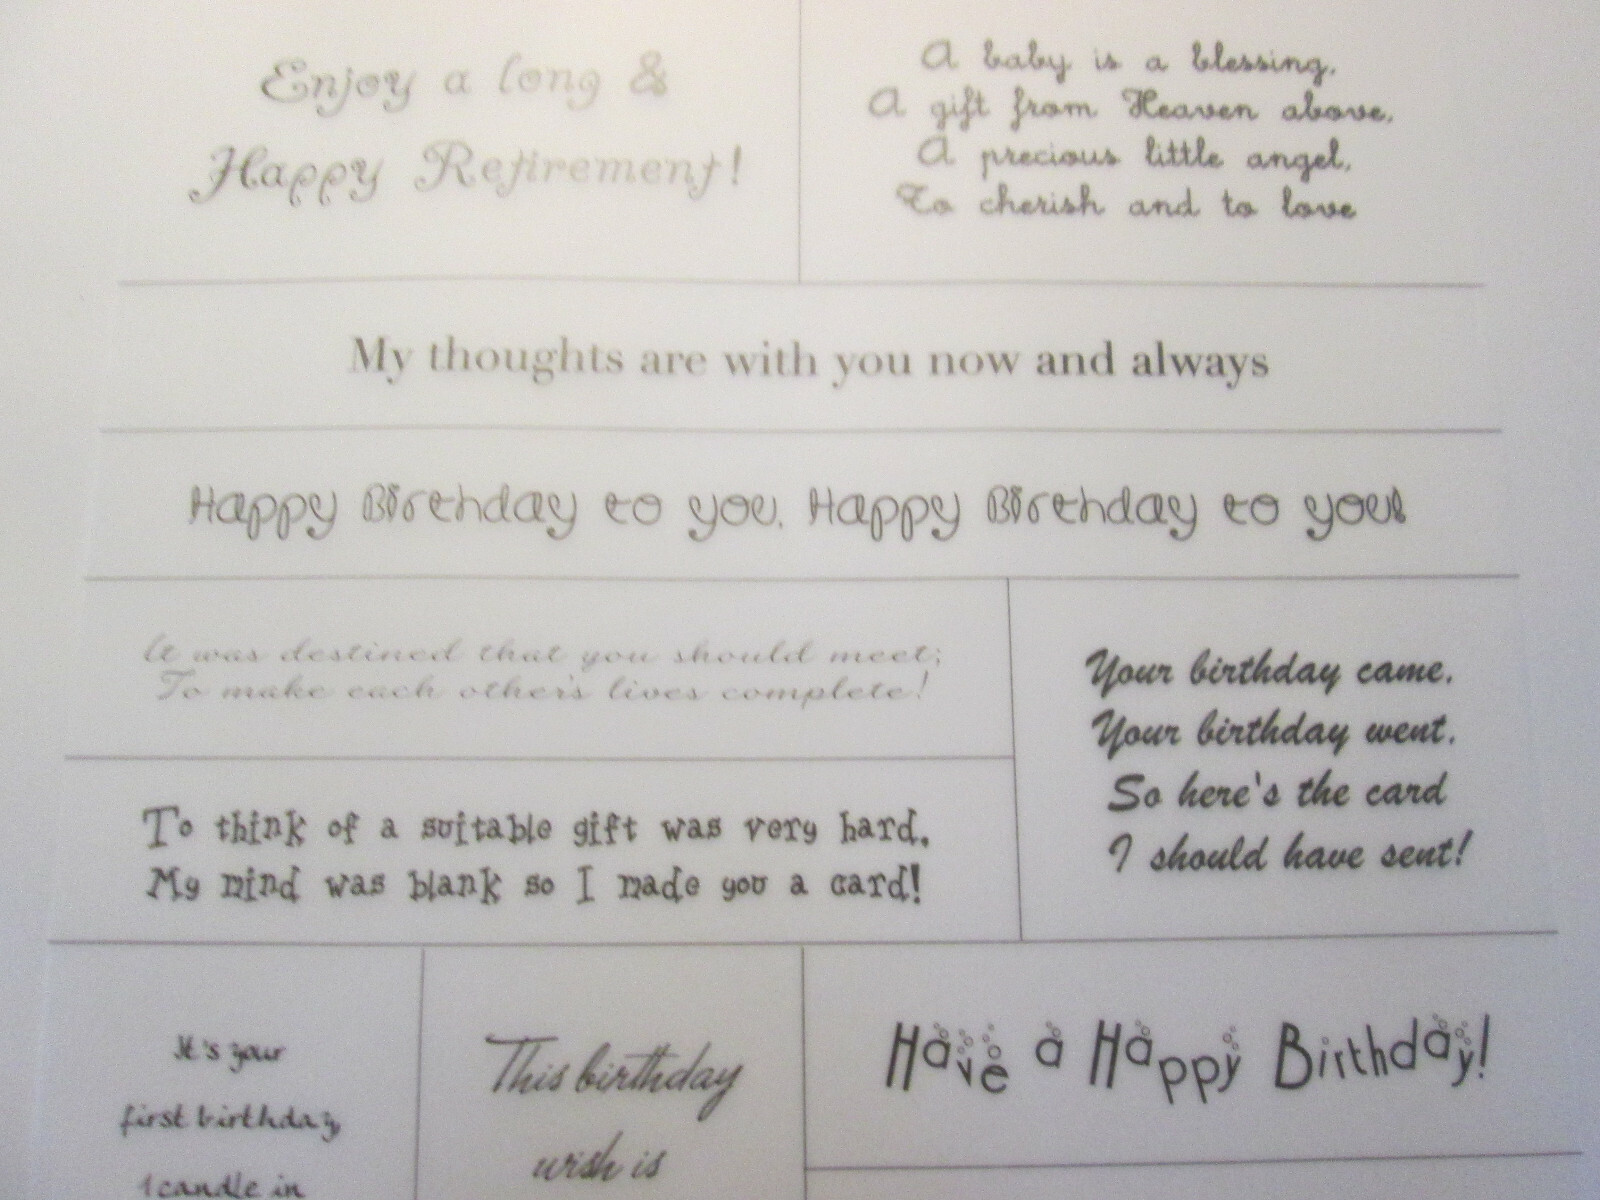 Enjoy a long &
Happy Retirement!
A baby is a blessing,
A gift from Heaven above,
A precious little angel,
To cherish and to love
My thoughts are with you now and always
Happy Birthday to you, Happy Birthday to you!
It was destined that you should meet;
To make each other's lives complete!
Your birthday came,
Your birthday went.
So here's the card
I should have sent!
To think of a suitable gift was very hard,
My mind was blank so I made you a card!
It's your
first birthday,
1 candle in
This birthday
wish is
Have a Happy Birthday!